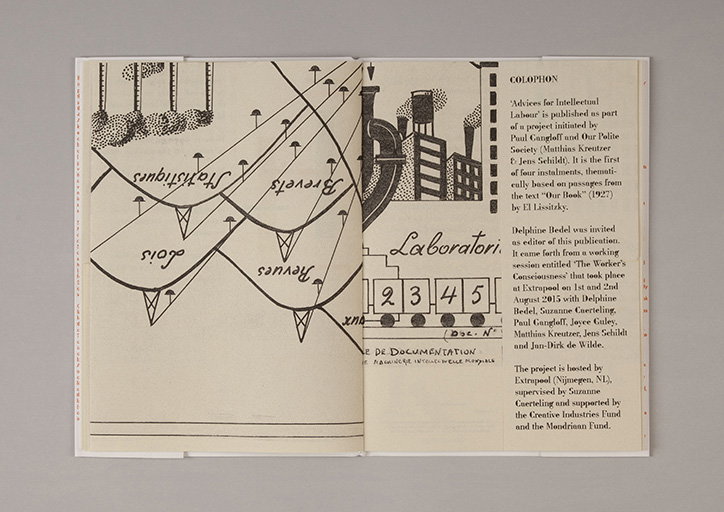 Statistiques
Brevets
Lois
Revues
Laboratori
2 3 4 5
aux
(Doc. N°
E DE DOCUMENTATION.
E MACHINERIE INTELLECTUELLE MONDIALE
COLOPHON
'Advices for Intellectual
Labour' is published as part
of a project initiated by
Paul Gangloff and Our Polite
Society (Matthias Kreutzer
& Jens Schildt). It is the first
of four instalments, themati-
cally based on passages from
the text "Our Book" (1927)
by El Lissitzky.
Delphine Bedel was invited
as editor of this publication.
It came forth from a working
session entitled 'The Worker's
Consciousness' that took place
at Extrapool on 1st and 2nd
August 2015 with Delphine
Bedel, Suzanne Caerteling,
Paul Gangloff, Joyce Guley,
Matthias Kreutzer, Jens Schildt
and Jan-Dirk de Wilde.
The project is hosted by
Extrapool (Nijmegen, NL),
supervised by Suzanne
Caerteling and supported by
the Creative Industries Fund
and the Mondriaan Fund.